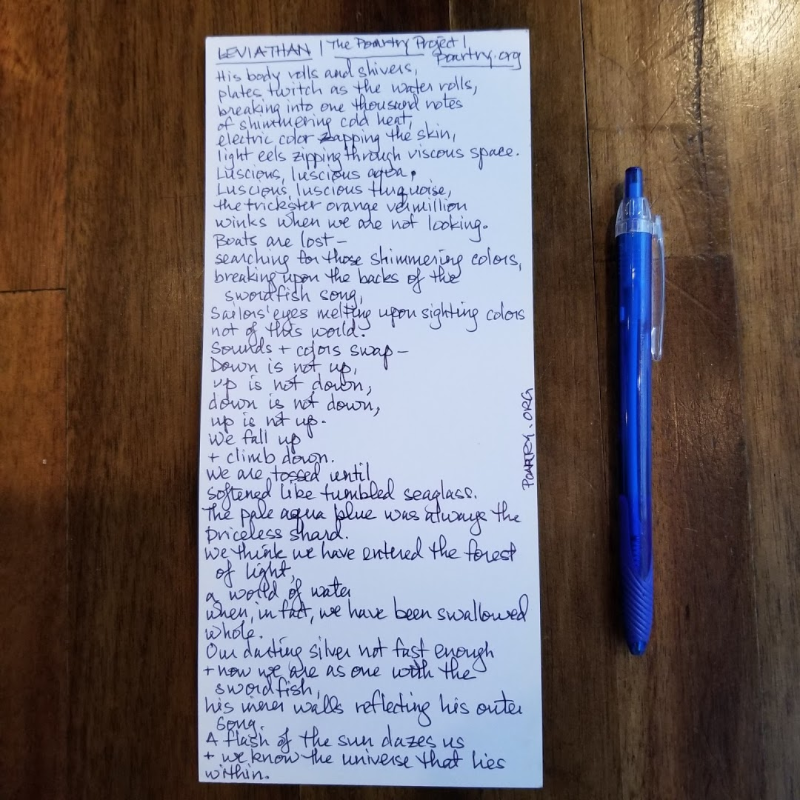 LEVIATHAN | The Poartry Project |
Poartry.org
His body rolls and shivers,
plates twitch as the water rolls,
breaking into one thousand notes
of shimmering cold heat,
electric color zapping the skin,
light eels zipping through viscous space.
Luscious, luscious aqua.
Luscious, luscious turquoise,
the trickster orange vermillion
winks when we are not looking.
Boats are lost –
searching for those shimmering colors,
breaking upon the backs of the
swordfish song,
Sailors' eyes melting upon sighting colors
not of this world.
Sounds + colors swap –
Down is not up,
up is not down,
down is not down,
up is not up.
We fall up
+ climb down.
We are tossed until
softened like tumbled seaglass.
The pale aqua blue was always the
priceless shard.
We think we have entered the forest
of light,
a world of water
when, in fact, we have been swallowed
whole.
Our darting silver not fast enough
+ now we are as one with the
swordfish,
his inner walls reflecting his outer
song.
A flash of the sun dazes us
+ we know the universe that lies
within.
POARTRY.ORG